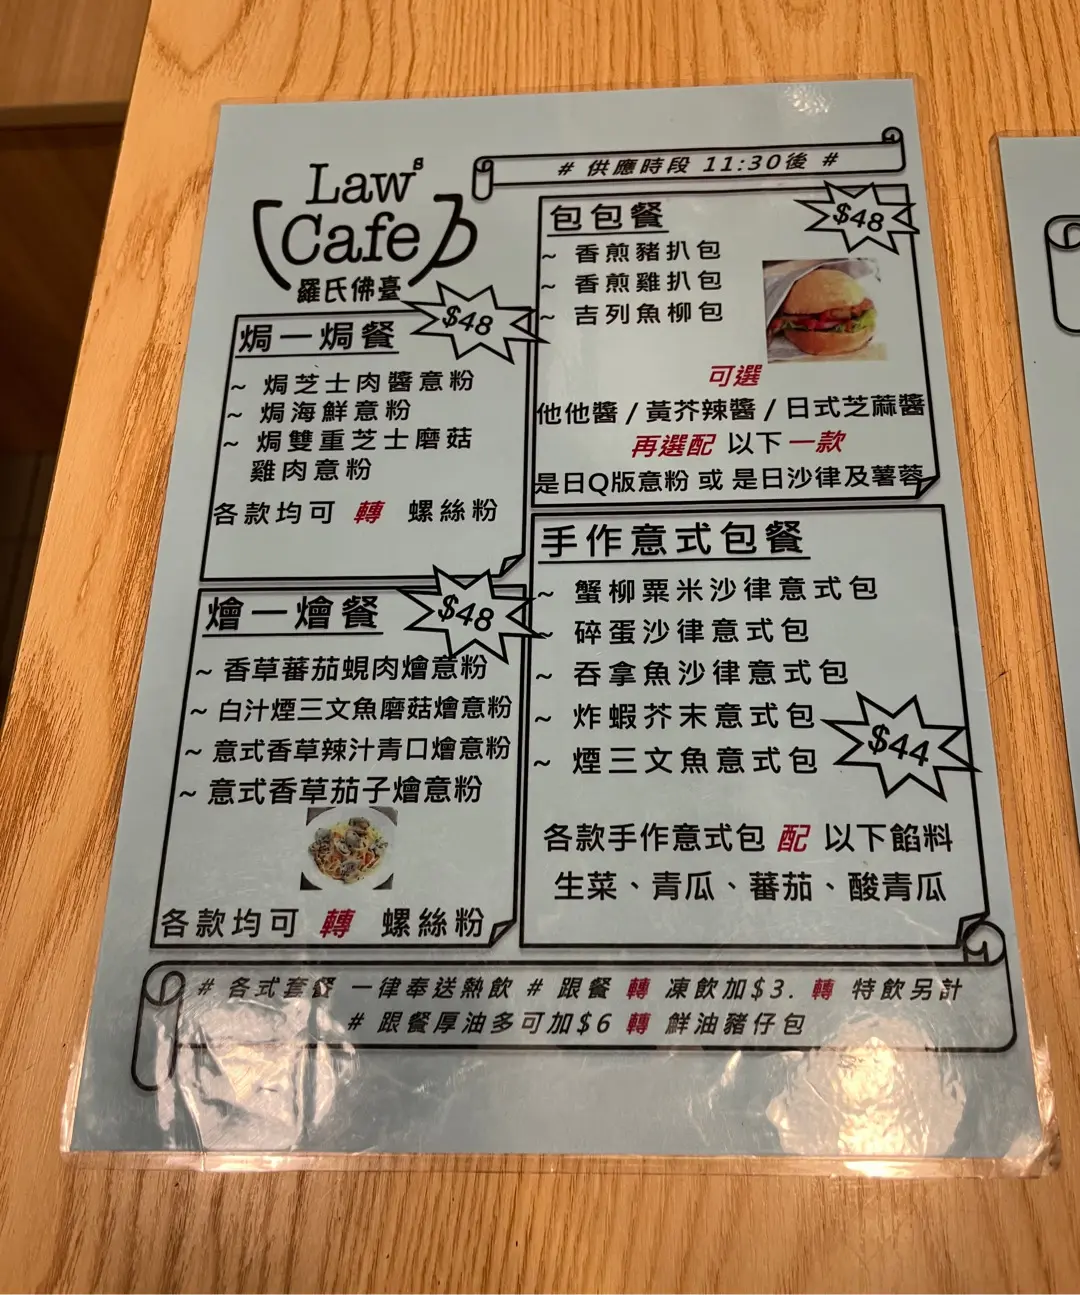 Law's
Cafe
羅氏佛臺
# 供應時段 11:30後 #
焗一焗餐
$48
~ 焗芝士肉醬意粉
~ 焗海鮮意粉
~ 焗雙重芝士磨菇
雞肉意粉
各款均可 轉 螺絲粉
包包餐
$48
~ 香煎豬扒包
~ 香煎雞扒包
~ 吉列魚柳包
可選
他他醬 / 黃芥辣醬 / 日式芝蔴醬
再選配 以下一款
是日Q版意粉 或 是日沙律及薯蓉
燴一燴餐
$48
~ 香草蕃茄蜆肉燴意粉
~ 白汁煙三文魚磨菇燴意粉
~ 意式香草辣汁青口燴意粉
~ 意式香草茄子燴意粉
各款均可 轉 螺絲粉
手作意式包餐
~ 蟹柳粟米沙律意式包
~ 碎蛋沙律意式包
~ 吞拿魚沙律意式包
~ 炸蝦芥末意式包
~ 煙三文魚意式包
$44
各款手作意式包 配 以下餡料
生菜、青瓜、蕃茄、酸青瓜
# 各式套餐 一律奉送熱飲 # 跟餐 轉 凍飲加$3. 轉 特飲另計
# 跟餐厚油多可加$6 轉 鮮油豬仔包